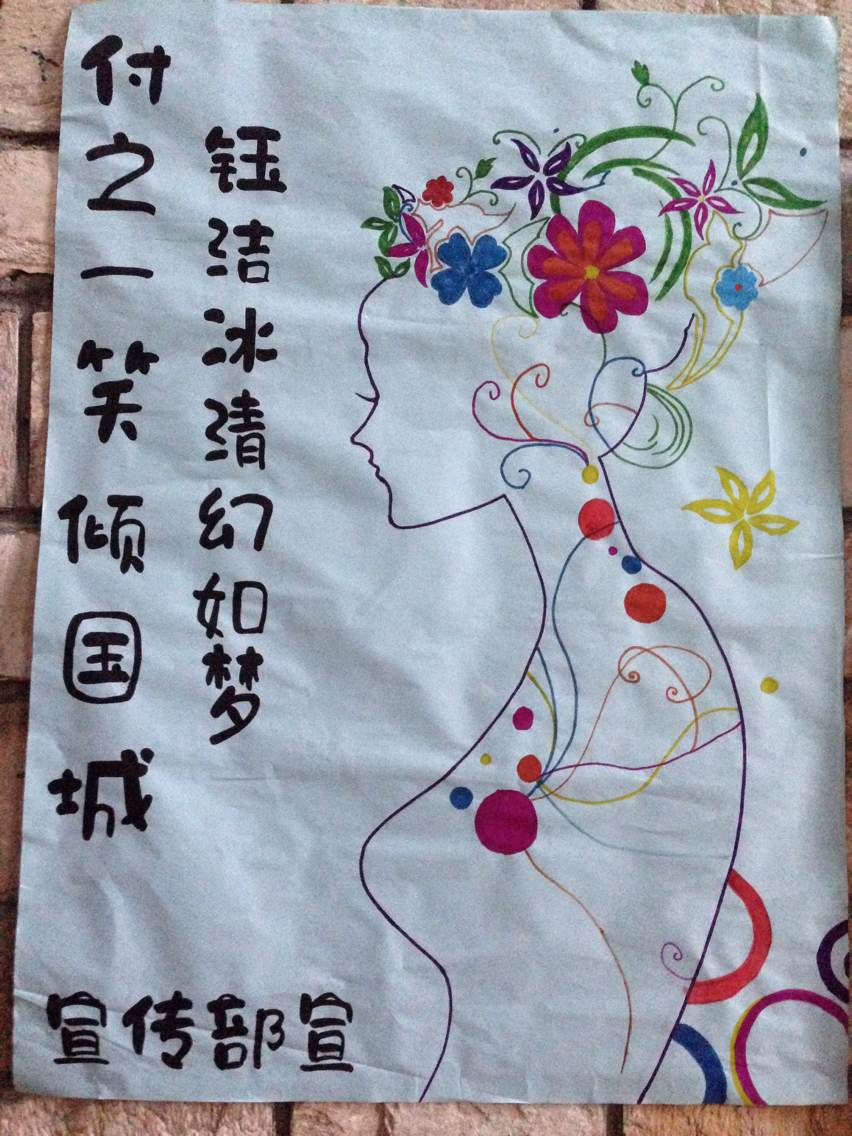 付之一笑倾国城
钰洁冰清幻如梦
宣传部宣